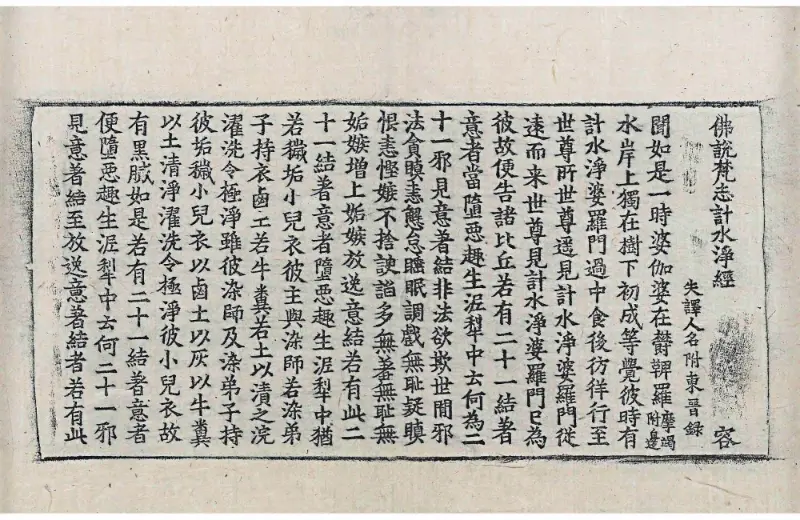 佛說梵志計水淨經 容
失譯人名附東晉錄
聞如是一時婆伽婆在欝鞞羅摩竭附邊
水岸上獨在樹下初成等覺彼時有
計水淨婆羅門過中食後彷徉行至
世尊所世尊遥見計水淨婆羅門從
遠而来世尊見計水淨婆羅門已為
彼故便告諸比丘若有二十一結著
意者當墮惡趣生泥犁中云何為二
十一邪見意著結非法欲欺世間邪
法貪瞋恚懈怠睡眠調戲無耻疑瞋
恨恚慳嫉不捨諛諂多無著無耻無
姤嫉增上姤嫉放逸意結若有此二
十一結著意者墮惡趣生泥犁中猶
若穢垢小兒衣彼主與染師若染弟
子持衣卤土若牛糞若土以漬之浣
濯洗令極淨雖彼染師及染弟子持
彼垢穢小兒衣以卤土以灰以牛糞
以土清淨濯洗令極淨彼小兒衣故
有黑膩如是若有二十一結著意者
便墮惡趣生泥犁中云何二十一邪
見意著結至放逸意著結者若有此